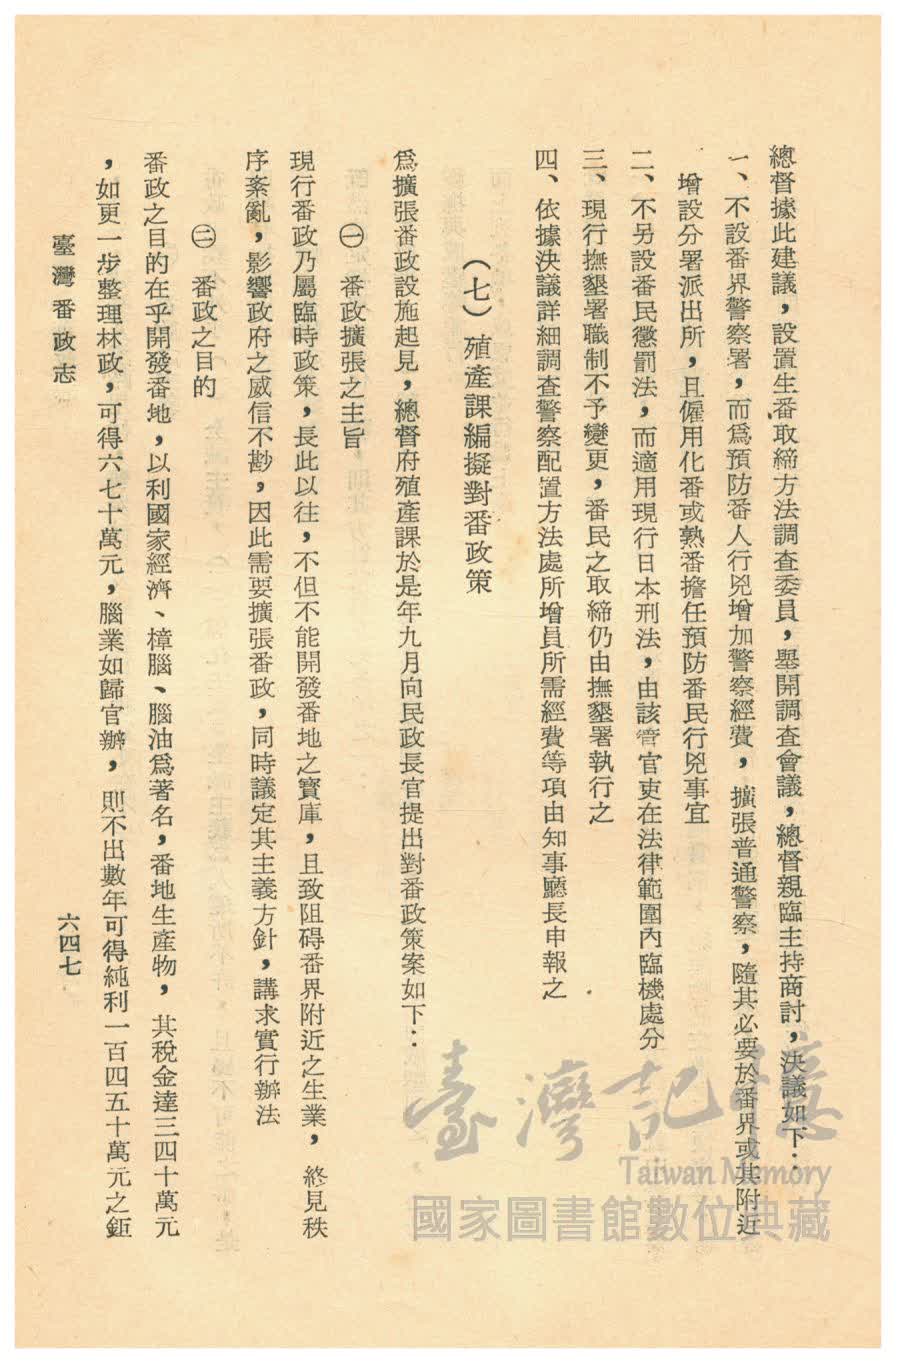 總督據此建議，設置生番取締方法調查委員，舉開調查會議，總督親臨主持商討，決議如下：
一、不設番界警察署，而爲預防番人行兇增加警察經費，擴張普通警察，隨其必要於番界或其附近
增設分署派出所，且僱用化番或熟番擔任預防番民行兇事宜
二、不另設番民懲罰法，而適用現行日本刑法，由該管官吏在法律範圍內臨機處分
三、現行撫墾署職制不予變更，番民之取締仍由撫墾署執行之
四、依據決議詳細調查警察配置方法處所增員所需經費等項由知事廳長申報之
（七）殖產課編擬對番政策
爲擴張番政設施起見，總督府殖產課於是年九月向民政長官提出對番政策案如下：
㊀　番政擴張之主旨
現行番政乃屬臨時政策，長此以往，不但不能開發番地之寶庫，且致阻碍番界附近之生業，終見秩
序紊亂，影響政府之威信不尠，因此需要擴張番政，同時議定其主義方針，講求實行辦法
㊁　番政之目的
番政之目的在乎開發番地，以利國家經濟、樟腦、腦油爲著名，番地生產物，其稅金達三四十萬元
，如更一步整理林政，可得六七十萬元，腦業如歸官辦，則不出數年可得純利一百四五十萬元之鉅
臺灣番政志
六四七
臺灣記憶
Taiwan Memory
國家圖書館數位典藏